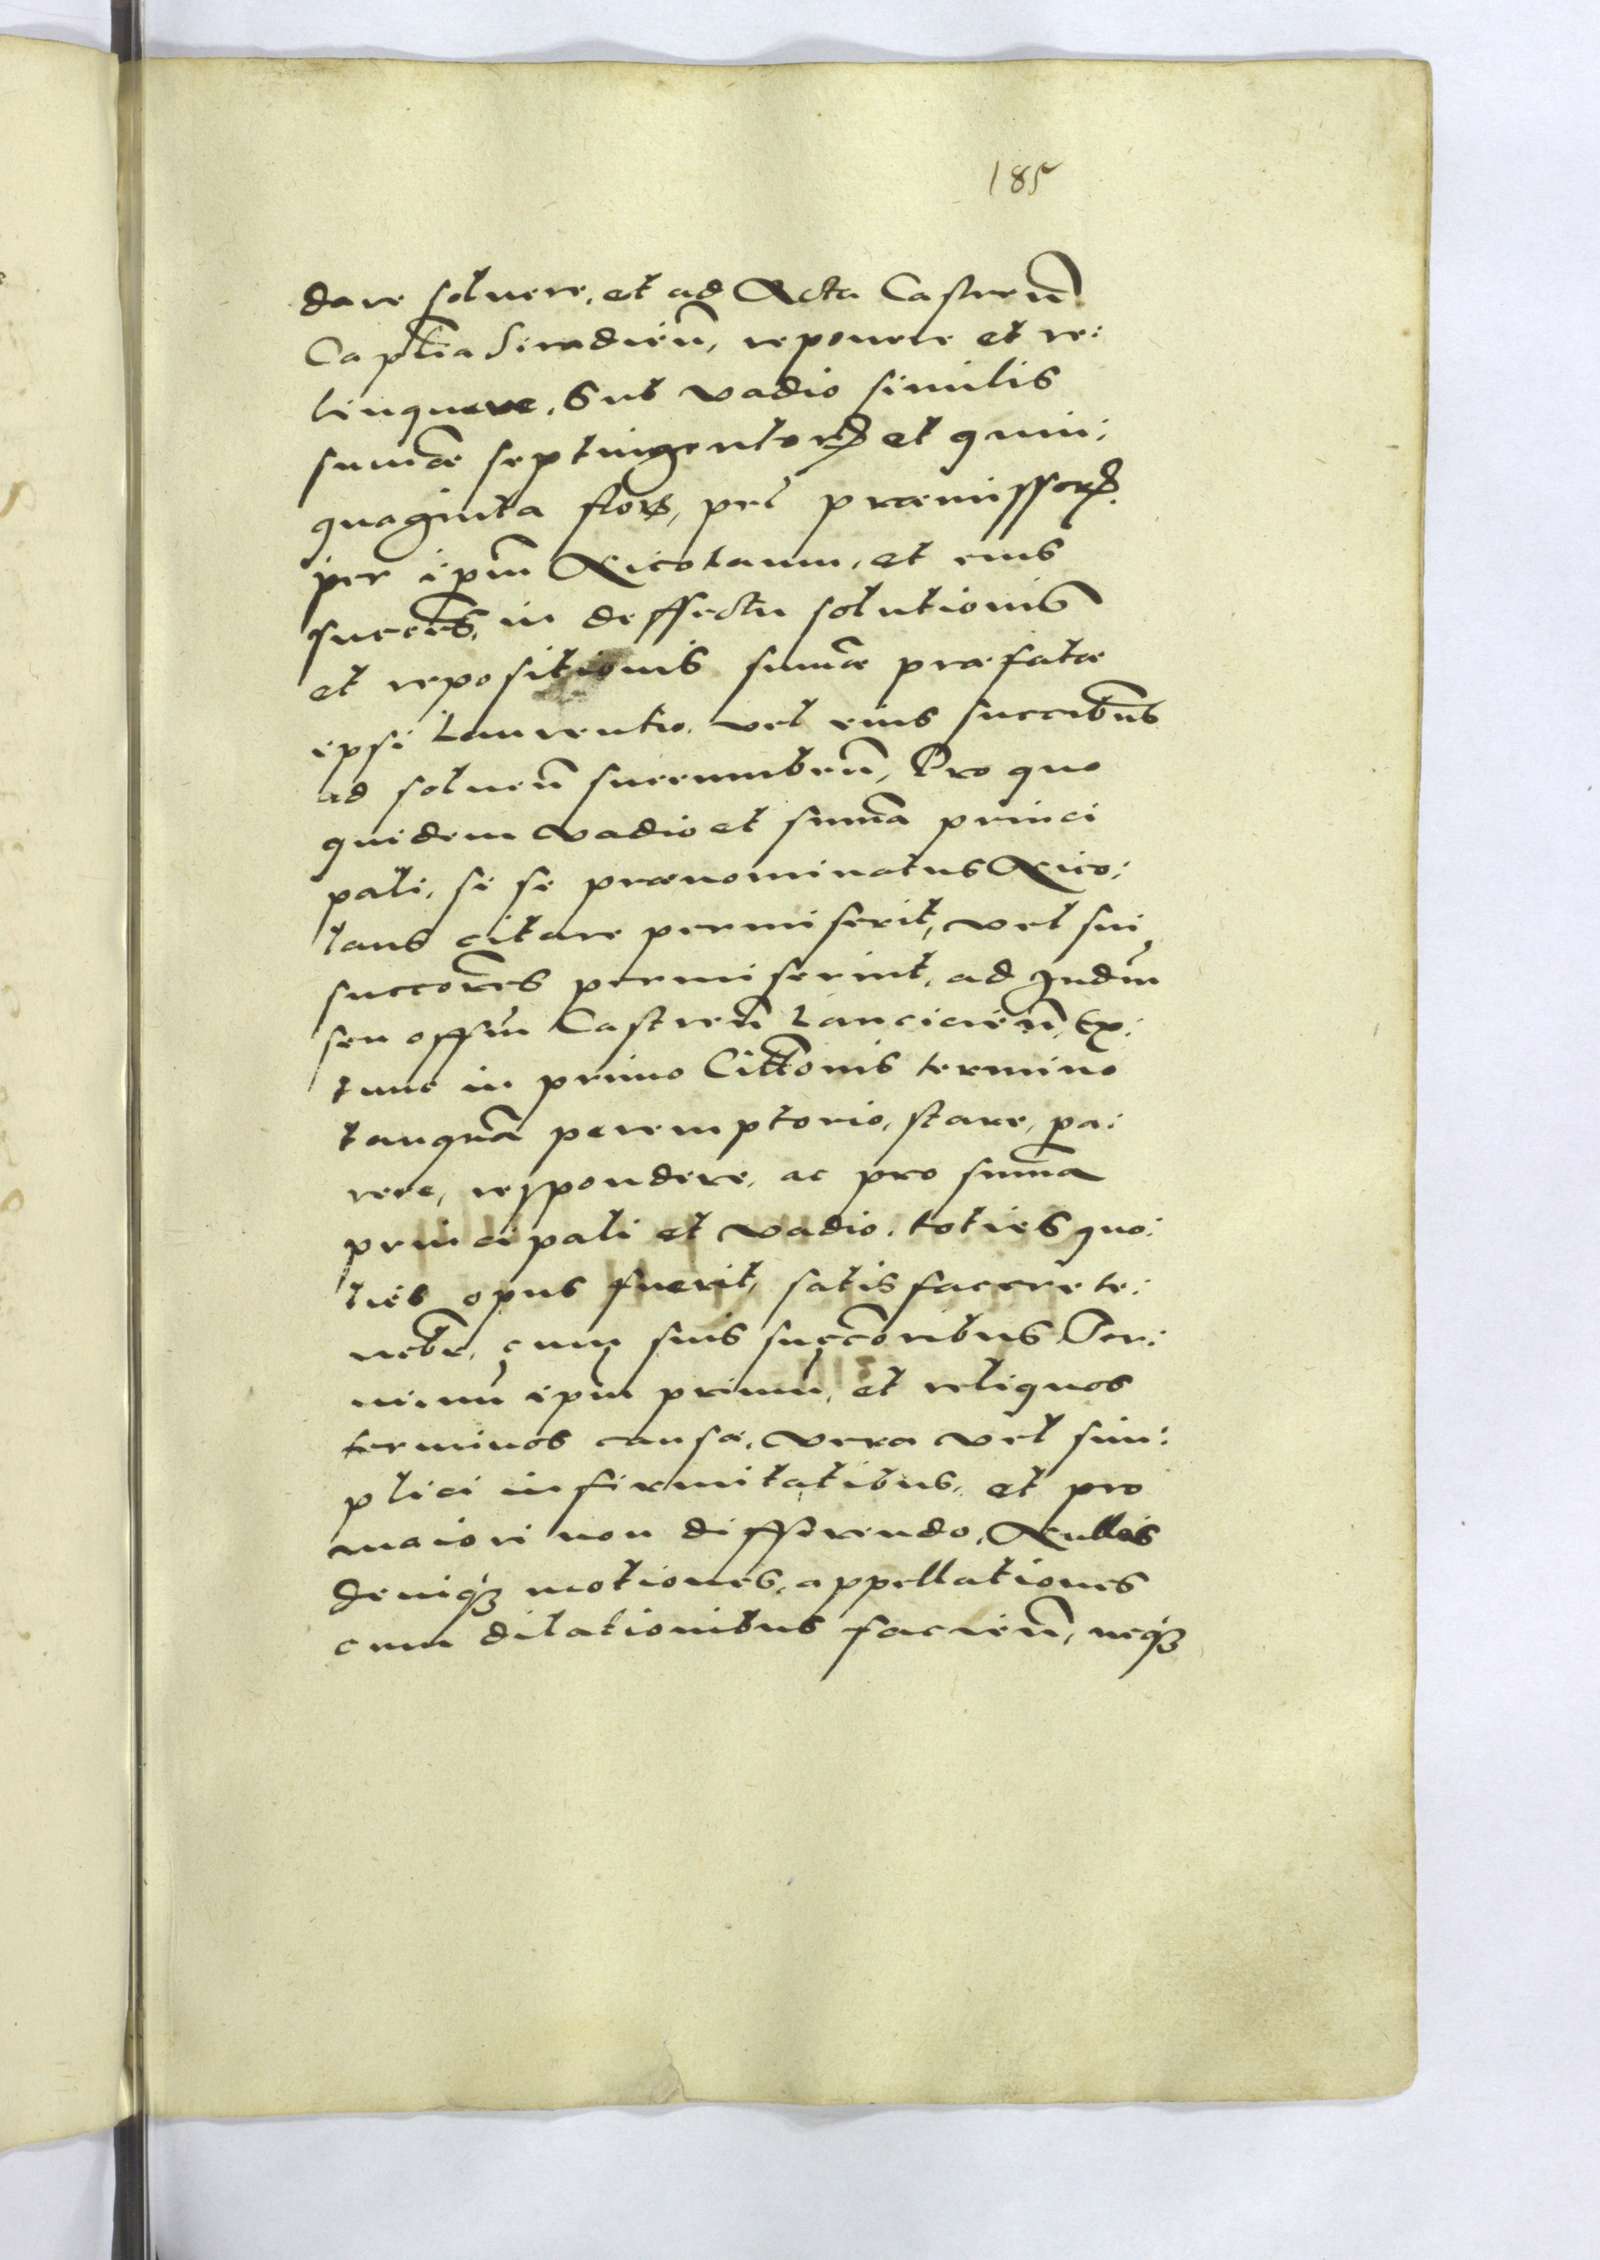 185
dare soluere, et ad Acta Castreñ
Captłia Siradieñ, reponere et re:
linquere, Sub vadio similis
sum̃æ septingentorꝝ et quin:
quaginta flor, pel præmissorꝝ.
per ip̃m Nicolaum, et eius
succes̃, in deffectu solutionis
et repositionis sum̃æ præfatæ
ipsi Laurentio, vel eius succ̃ibus
ad soluen̄ succumben̄, Pro quo
quidem vadio et sum̃a princi
pali, si se prænominatus Nico:
laus citare permiserit, vel sui
succ̃ores permiserint, ad Judm̃
seu offm̃ Castreñ Lancicień, Ex:
tunc in primo Citt̃onis termino
tanquã peremptorio, stare, pa:
rere, respondere, ac pro sum̃a
principali et vadio, toties quo:
ties opus fuerit, satisfacere te:
neb̃r, cum suis succ̃oribus Ter:
minũ ip̃m primũ, et reliquos
terminos causæ, vera vel sim:
plici infirmitatibus, et pro
maiori non differendo, Nullas
deniqꝫ motiones, appellationes
cum dilationibus facień, neqꝫ